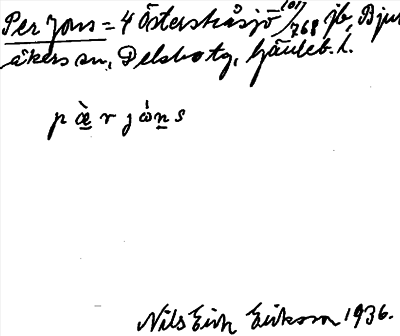 Per Jons = 4 Österskåsjö 101/768 jb, Bjur
åkers sn, Delsbo tg, Gävleb. l.
pæ̀rjώns
Nils Erik Erikson 1936.